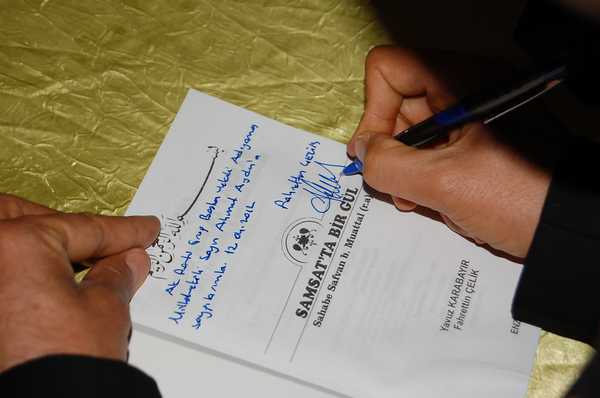 Ak Parti Grup Başkan Vekili Adıyaman
Milletvekili Sayın Ahmet Aydın'a
saygılarımla. 12.01.2012
Fahrettin ÇELİK
SAMSAT'TA BİR GÜL
Sahabe Safvan b. Muattal (r.a)
Yavuz KARABAYIR
Fahrettin ÇELİK